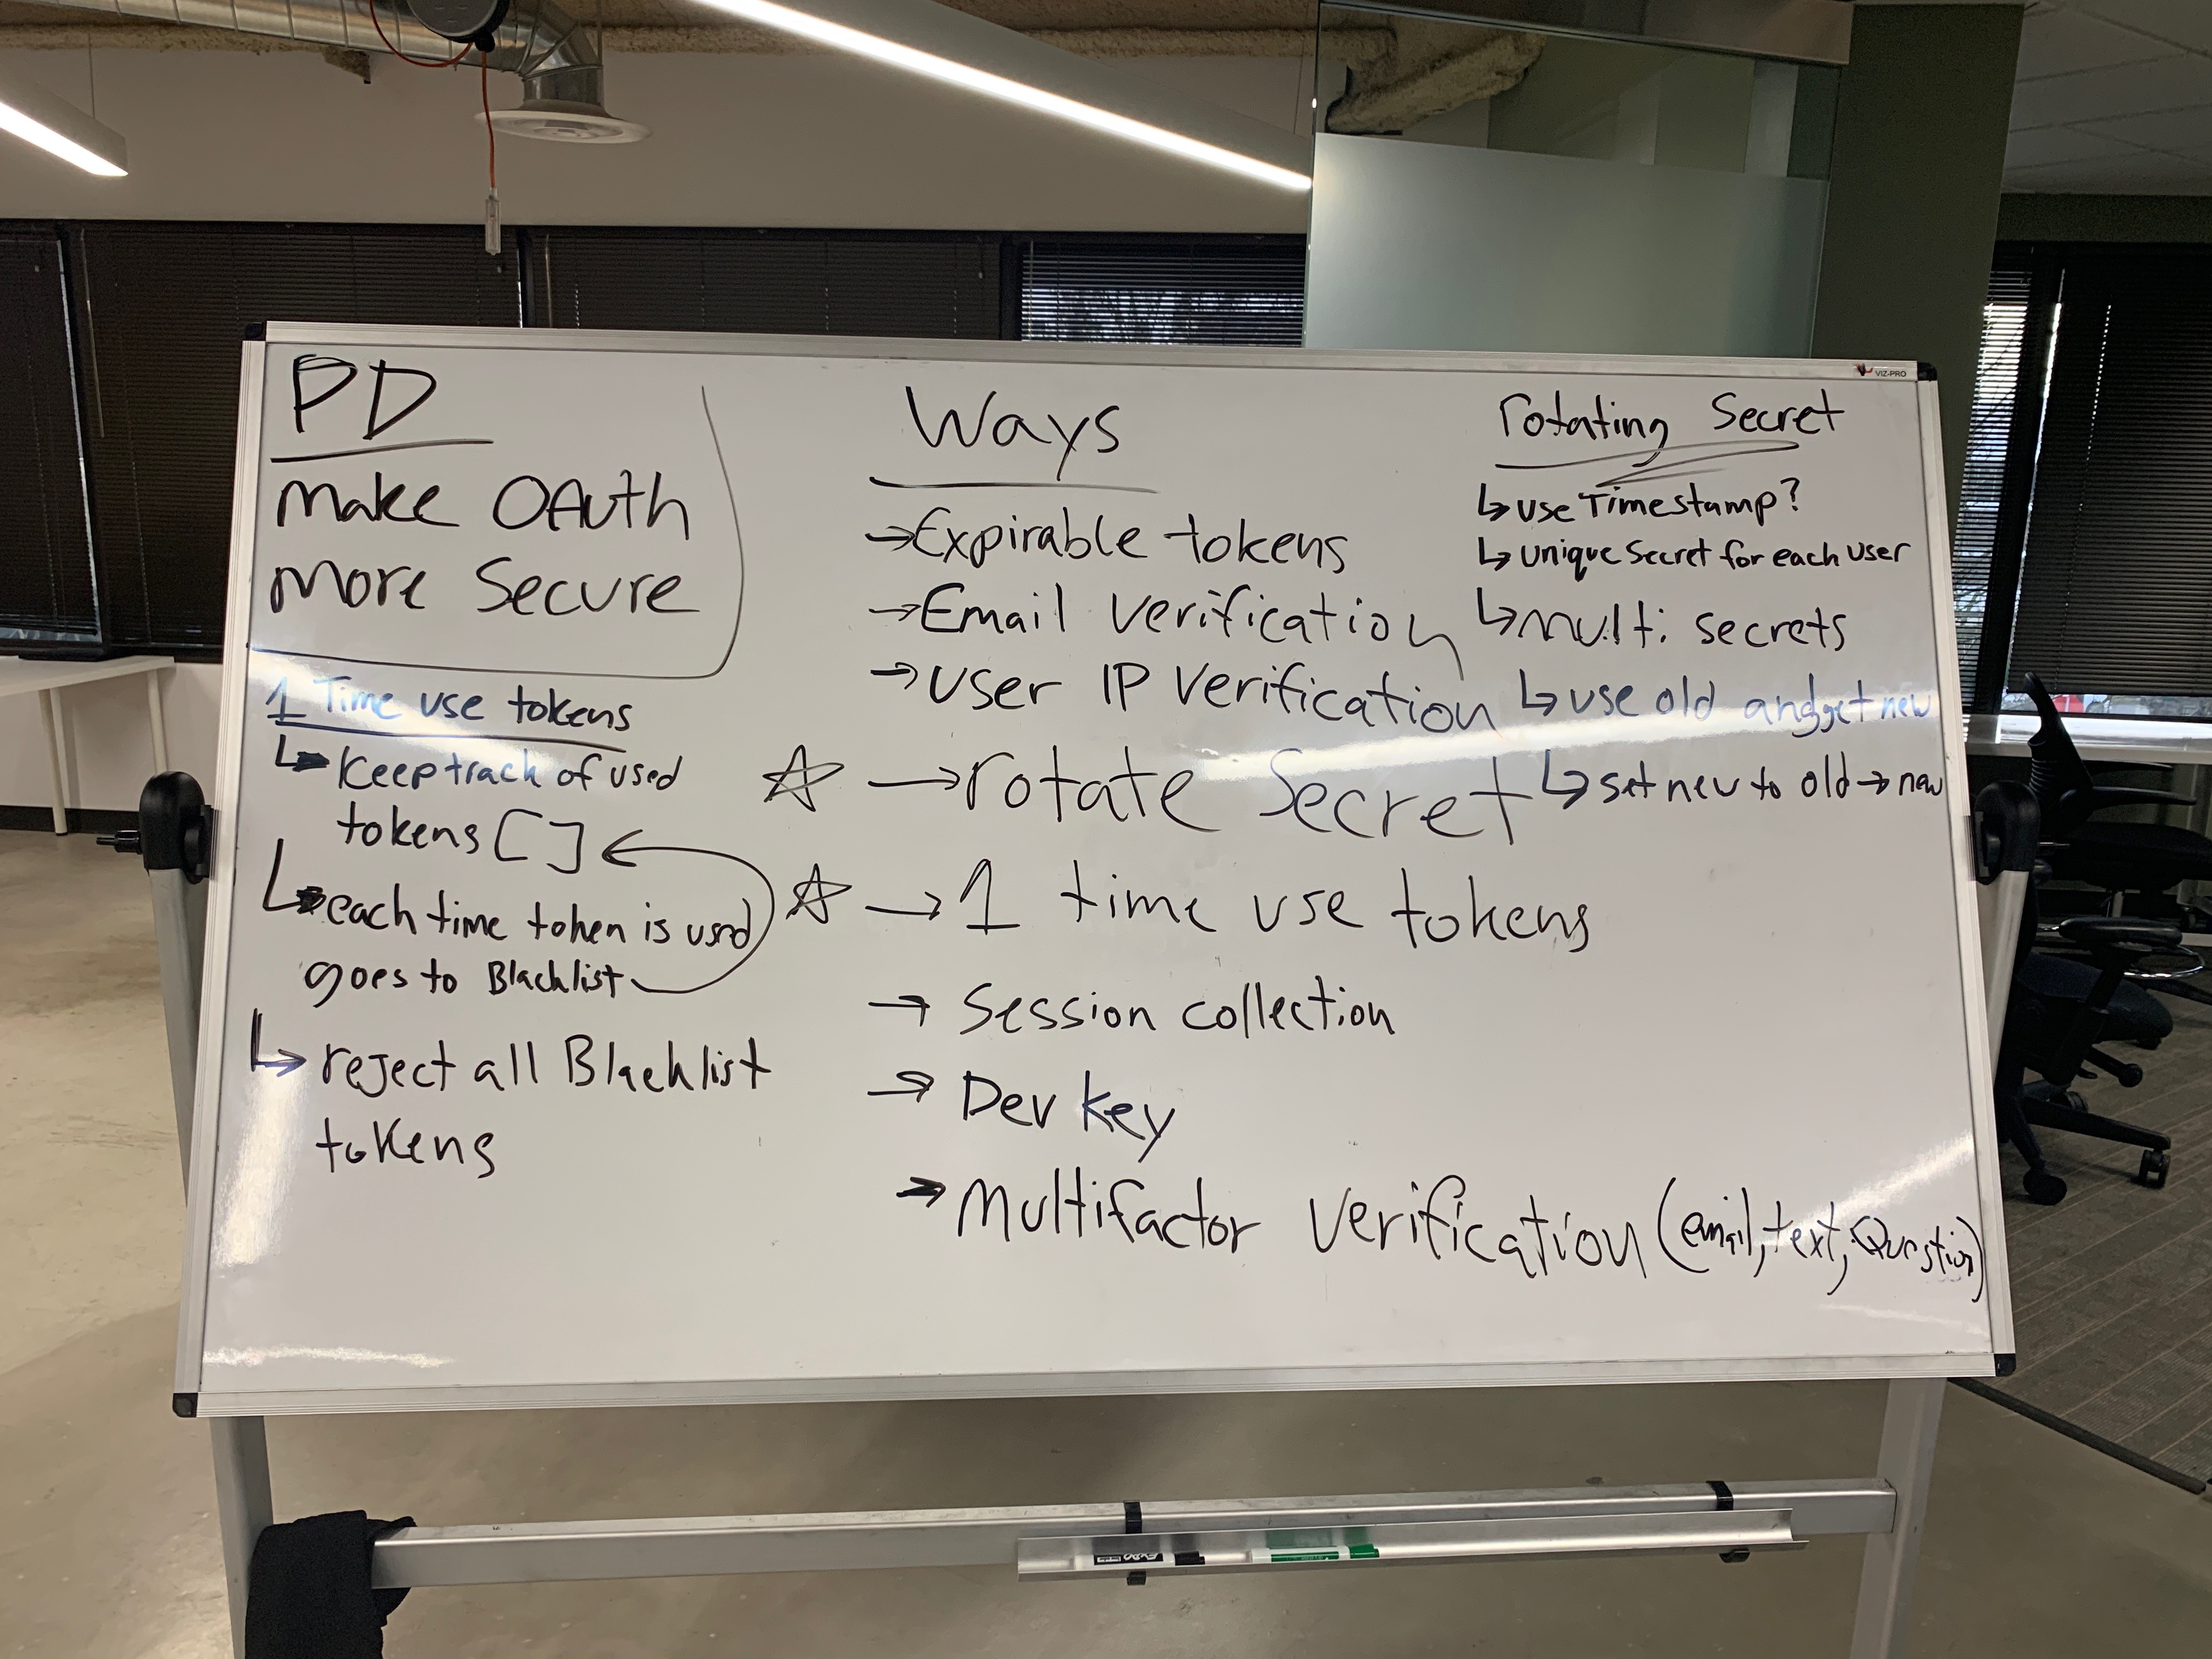 PD
make OAuth
more Secure
1 Time use tokens
↳ Keep track of used
tokens []
↳ each time token is used
goes to Blacklist
↳ reject all Blacklist
tokens
Ways
→ Expirable tokens
→ Email verification
→ User IP Verification
☆ → rotate Secret
☆ → 1 time use tokens
→ Session collection
→ Dev key
→ Multifactor Verification (email, text, Question)
rotating Secret
↳ use Timestamp?
↳ unique Secret for each user
↳ multi secrets
↳ use old and get new
↳ set new to old → new
VIZ-PRO
EXPO